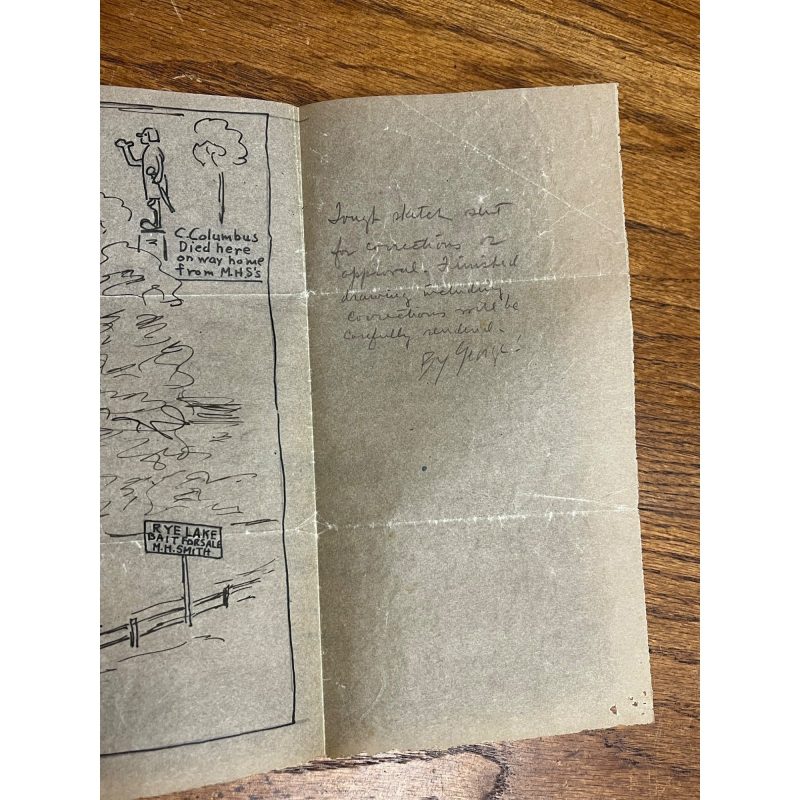 C.Columbus
Died here
on way home
from M.H.S's
RYE LAKE
BAIT FOR SALE
M.H.SMITH
Rough sketch sent
for corrections or
approval. Finished
drawing including
corrections will be
carefully rendered.
By George!